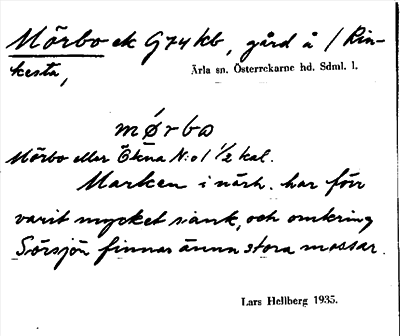 Mörbo ek G74 kb, gård å / Rin-
kesta,
Ärla sn. Österrekarne hd. Sdml. l.
mǿrbo
Mörbo eller Ökna N:o 1 1/2 kal.
Marken i närh. har förr
varit mycket sank, och omkring
Sörsjön finnas ännu stora mossar.
Lars Hellberg 1935.